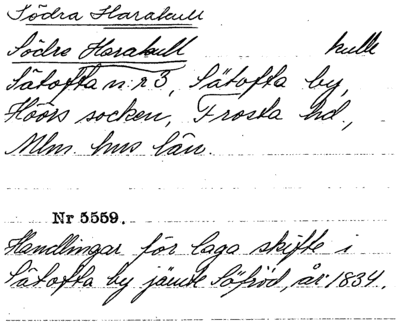 Södra Harakull
Södra Harakull kulle
Sätofta nr 3, Sätofta by,
Höörs socken, Frosta hd.,
Mlm. hus län.
Nr 5559.
Handlingar för laga skifte i
Sätofta by jämte Söfröd, år 1834.